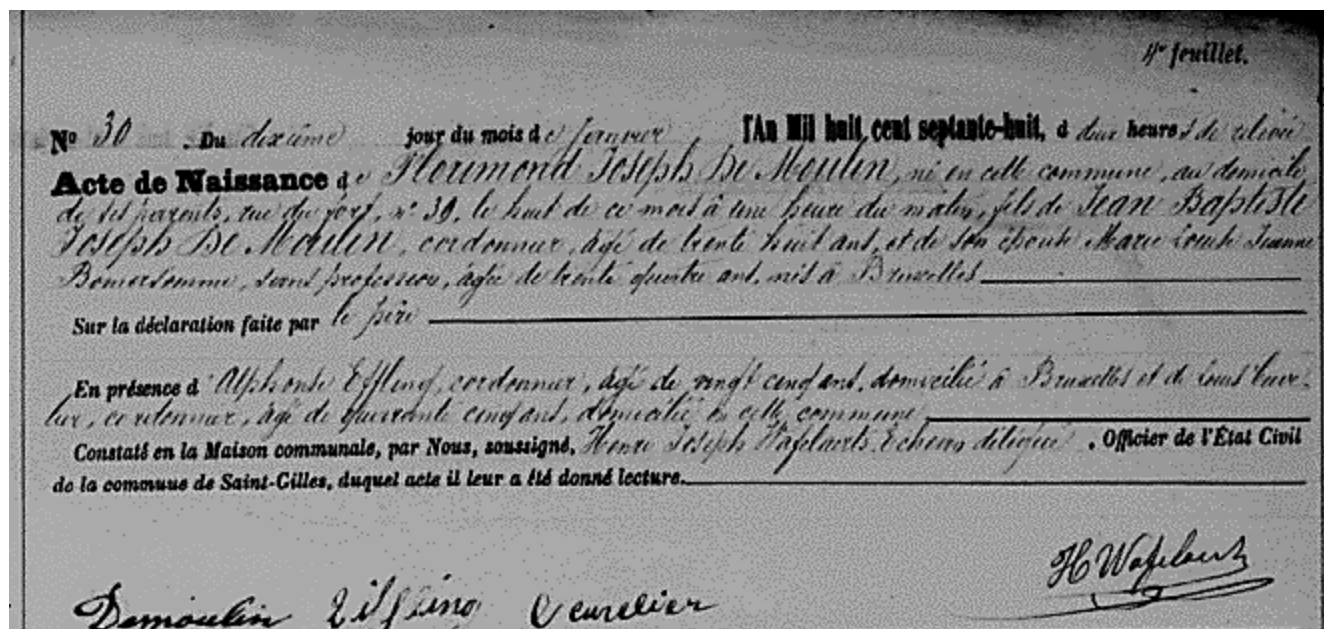 4e feuillet.
No 30 . Du dixième jour du mois de janvier l'An Mil huit cent septante-huit, à deux heures de relevée
Acte de Naissance de Florimond Joseph De Moulin, né en cette commune, au domicile
de ses parents, rue du fort, no 39, le huit de ce mois à une heure du matin, fils de Jean Baptiste
Joseph De Moulin, cordonnier, âgé de trente huit ans, et de son épouse Marie Louise Jeanne
sans profession, âgée de trente quatre ans, nés à Bruxelles
Sur la déclaration faite par le père
En présence d'Alphonse Effling, cordonnier, âgé de vingt cinq ans, domicilié à Bruxelles et de Louis Cuve-
lier, cordonnier, âgé de quarante cinq ans, domicilié en cette commune
Constaté en la Maison communale, par Nous, soussigné, Henri Joseph Wafelaerts, Echevin délégué, Officier de l'État Civil
de la commune de Saint-Gilles, duquel acte il leur a été donné lecture.
H Wafelaerts
Demoulin